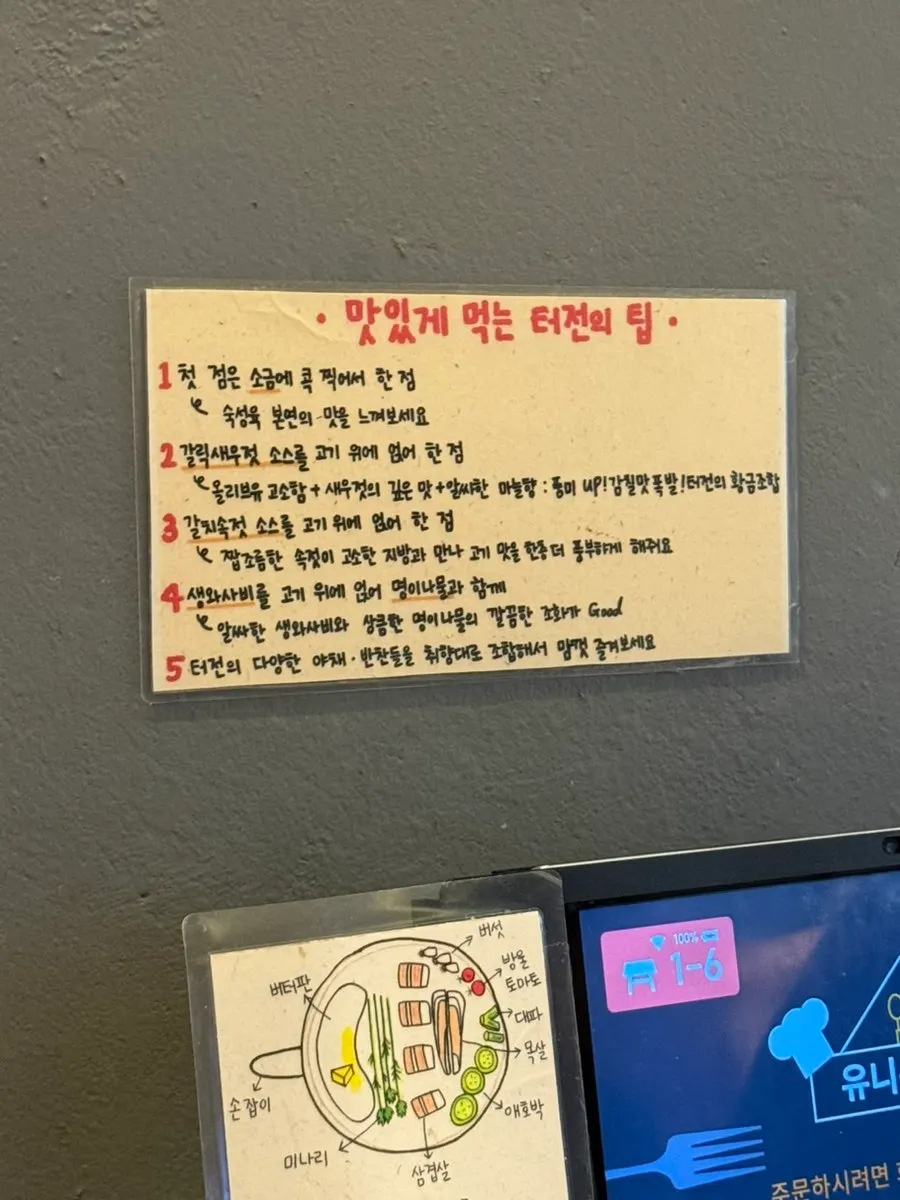 · 맛있게 먹는 터전의 팁 ·
1 첫 점은 소금에 콕 찍어서 한 점
숙성육 본연의 맛을 느껴보세요
2 갈릭새우젓 소스를 고기 위에 얹어 한 점
올리브유 고소함 + 새우젓의 깊은 맛 + 알싸한 마늘향 : 풍미 UP! 감칠맛 폭발! 터전의 황금조합
3 갈치속젓 소스를 고기 위에 얹어 한 점
짭조름한 속젓이 고소한 지방과 만나 고기 맛을 한층 더 풍부하게 해줘요
4 생와사비를 고기 위에 얹어 명이나물과 함께
알싸한 생와사비와 상큼한 명이나물의 깔끔한 조화가 Good
5 터전의 다양한 야채·반찬들을 취향대로 조합해서 맘껏 즐겨보세요
버섯
버터판
방울
토마토
대파
목살
애호박
손잡이
미나리
삼겹살
100%
1-6
유니
주문하시려면